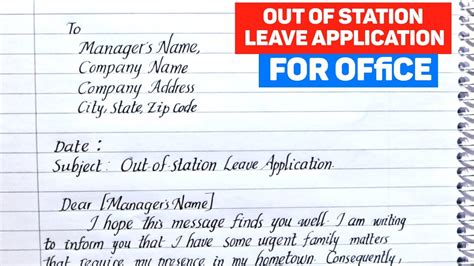 OUT OF STATION
LEAVE APPLICATION
FOR OFFiCE
To
Manager's Name,
Company Name
Company Address
City, State, Zip code
Date :
Subject: Out of station Leave Application.
Dear [Manager's Name]
I hope this message finds you well. I am writing
to inform you that I have some urgent family matters
that require my presence in my hometown. Consequently,